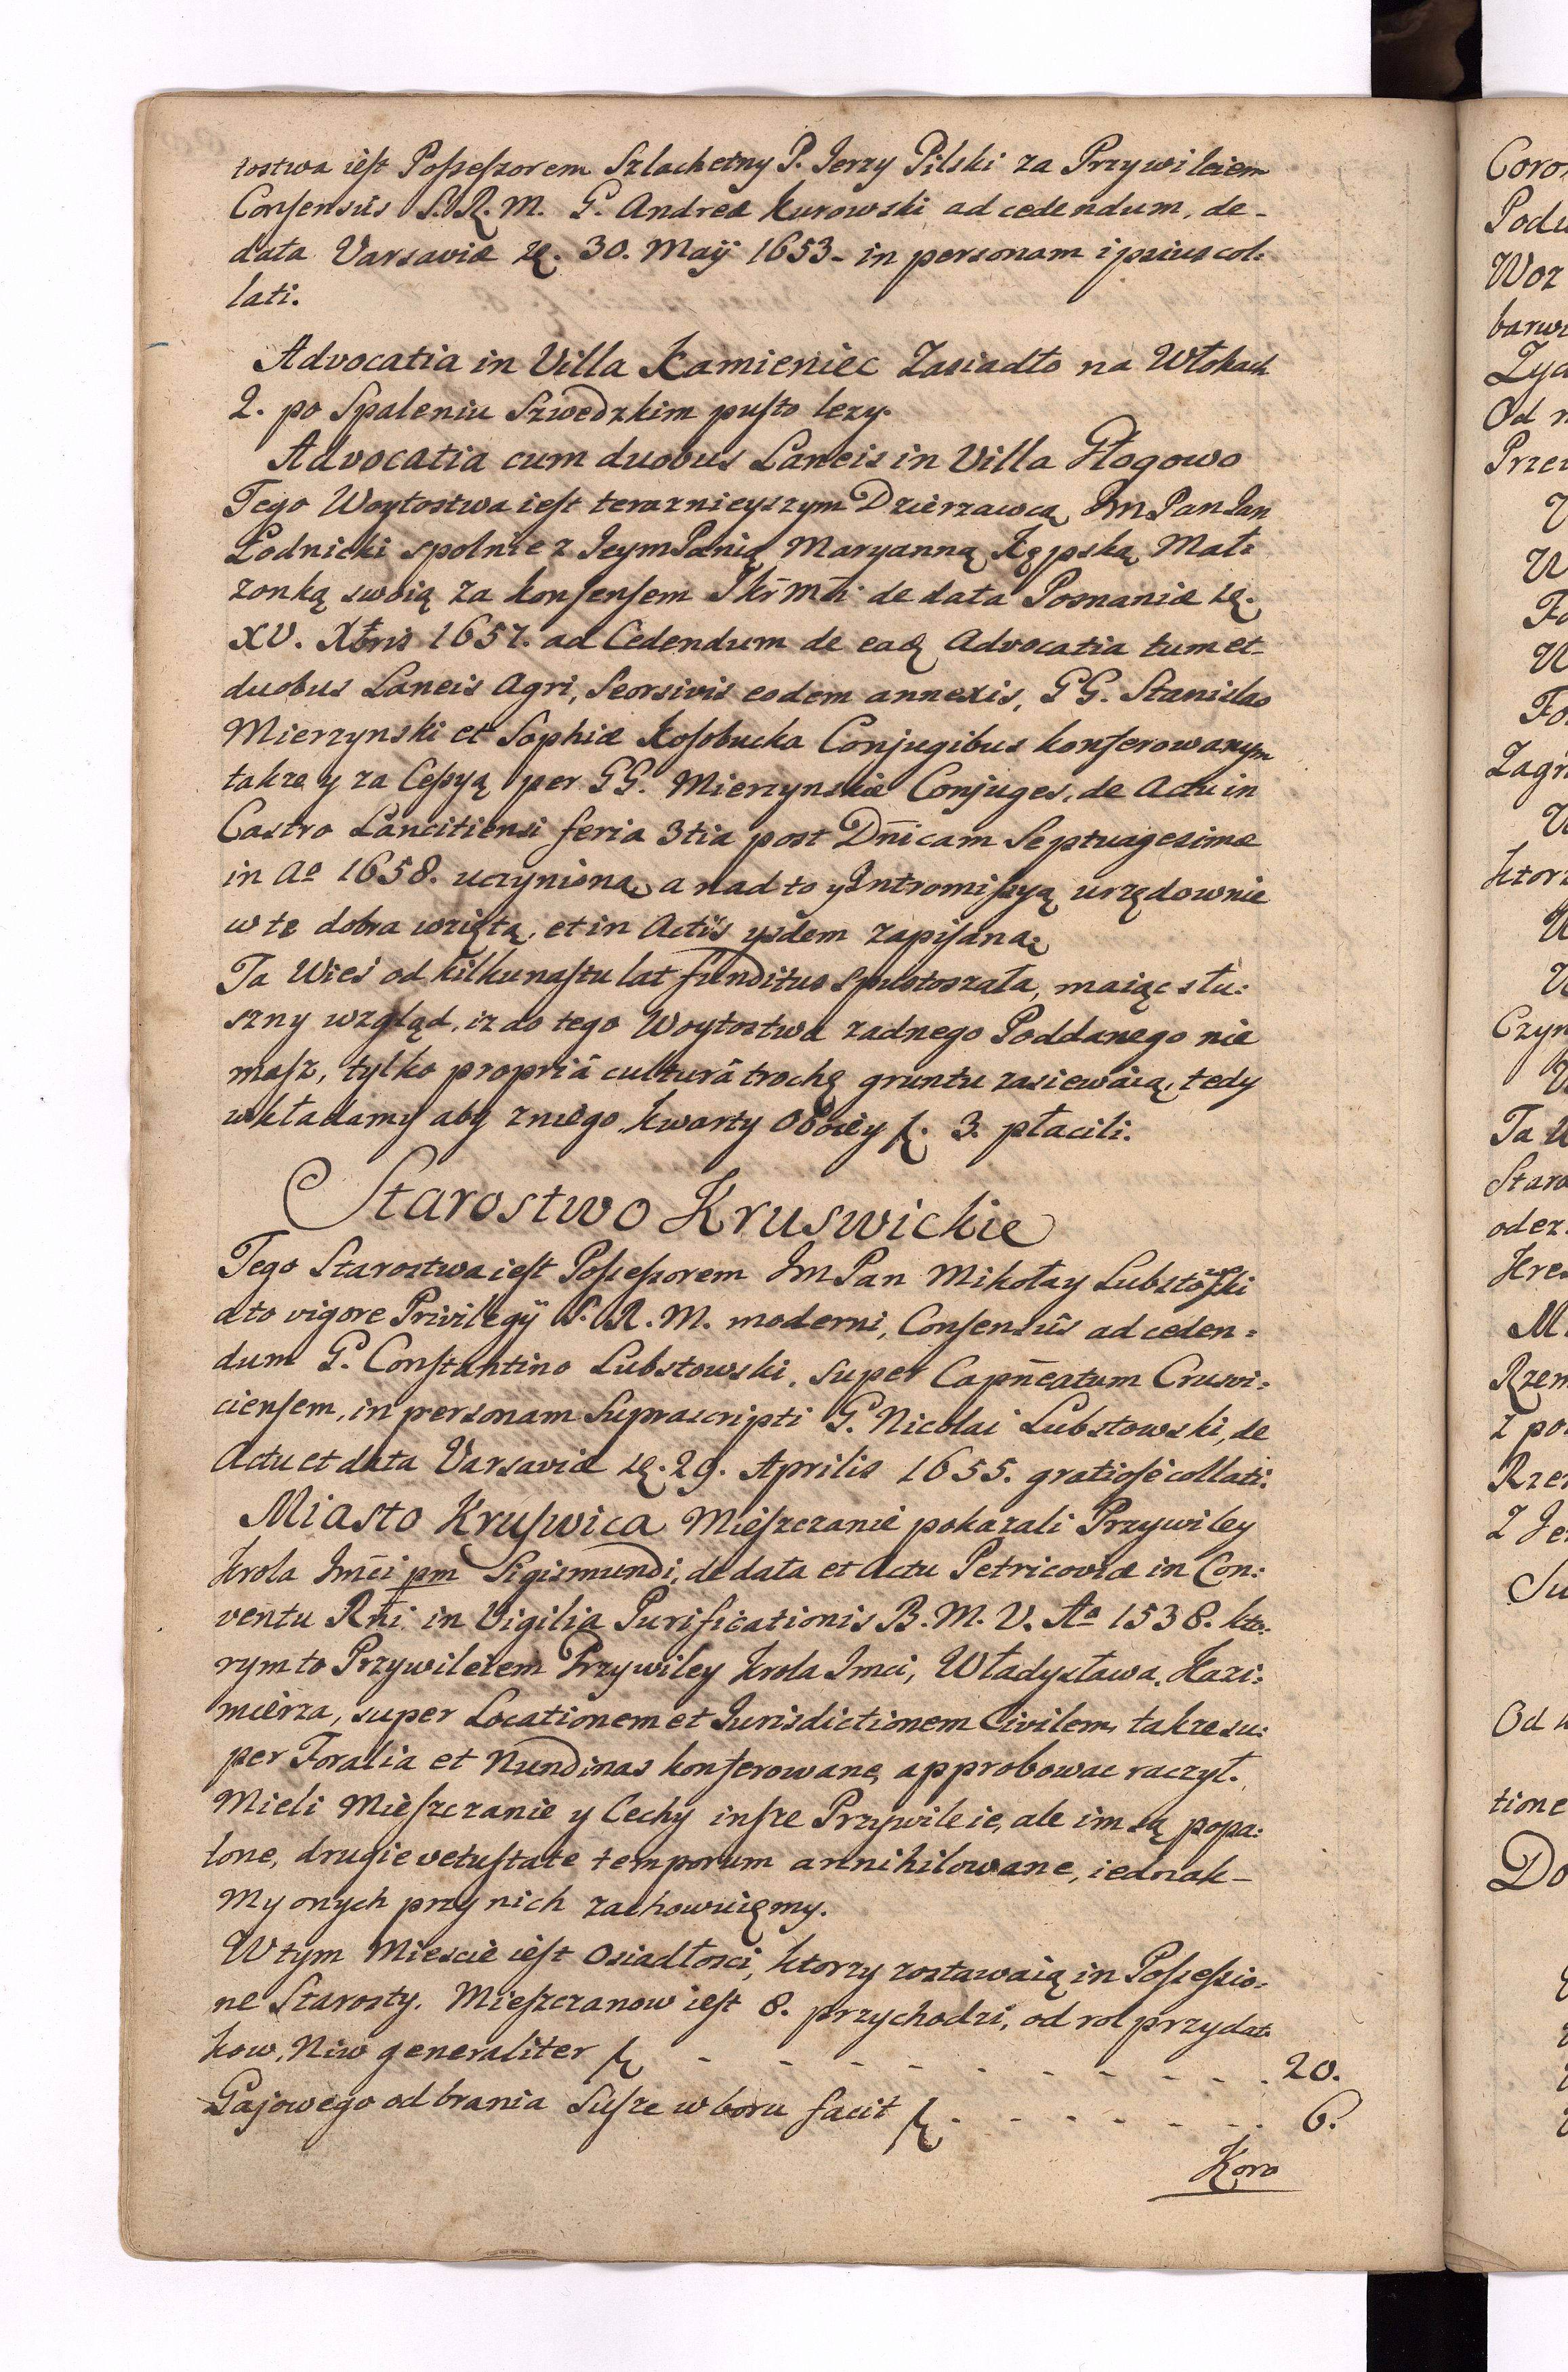 tostwa iest Possessorem Szlachetny P. Jerzy Pilski za Przywileiem
Consensûs S. R. M. G. Andreæ Kurowski ad cedendum, de-
data Varsaviæ 30. Maÿ 1653- in personam ipsius col:
lati.
Advocatia in Villa Kamieniec Zasiadło na Włokach
2. po Spaleniu Szwedzkim pusto lezy.
Advocatia cum duobus Laneis in Villa Głogowo
Tego Woytostwa iest teraznieyszym Dzierzawcą Jm Pan Jan
Łodnicki spolnie z JeymPanią Maryanną Kępską Mał:
zonką swoią za konsensem de data Posnaniæ
XV. Xbris 1657. ad Cedendum de eadͫ Advocatia tum et
duobus Laneis Agri, Seorsivis eodem annexis, GG. Stanislao
Mierzynski et Sophiæ Kosobucka Conjugibus konferowanym
takze y za Cessyą per GG. Mierzynskie Conjuges, de Actu in
Castro Lancitiensi feria 3tia post Dn̄icam Septuagesimæ
in Ao 1658. uczynioną, a nadto y Intromissyą urzędownie
w te dobra wziętą, et in Actis ysdem zapisaną:
Ta Wieś od kilkunastu lat funditus spustoszała, maiąc słu:
szny wzgląd, iz do tego Woytostwa zadnego Poddanego nie
masz, tylko propriâ culturâ trochę gruntu zasiewaią, tedy
wkładamy aby z niego kwarty Oboiey f. 3. płacili.
Starostwo Kruswickie
Tego Starostwa iest Possessorem Jm Pan Mikołay Lubstowski
a to vigore Privilegÿ S. R. M. moderni, Consensûs ad ceden:
dum G. Constantino Lubstowski, super Capn̄eatum Crusvi:
ciensem, in personam Suprascripti G. Nicolai Lubstowski, de
Actu et data Varsaviæ 29. Aprilis 1655. gratiosè collati.
Miasto Kruswica Mieszczanie pokazali Przywiley
Krola Jmći pm Sigismundi, de data et Actu Petricoviæ in Con:
ventu Rn̄i in Vigilia Purificationis B. M. V. Ao 1538. kto:
rym to Przywileiem Przywiley Krola Jmci, Władysława, Kazi:
mierza, super Locationem et Jurisdictionem Civilem, takze su:
per Foralia et Nundinas konferowane, approbowac raczył.
Mieli Mieszczanie y Cechy insze Przywileie, ale im są popa:
lone, drugie vetustate temporum annihilowane, iednak-
My onych przy nich zachowuięmy.
W tym Miescie iest Osiadłosci, ktorzy zostawaią in Possessio:
ne Starosty. Mieszczanow iest 8. przychodzi, od rol przydat:
kow, Niw generaliter f. - - - - - - - - - 20.
Gajowego od brania Susze w boru facit f. - - - - - - 6.
Koro